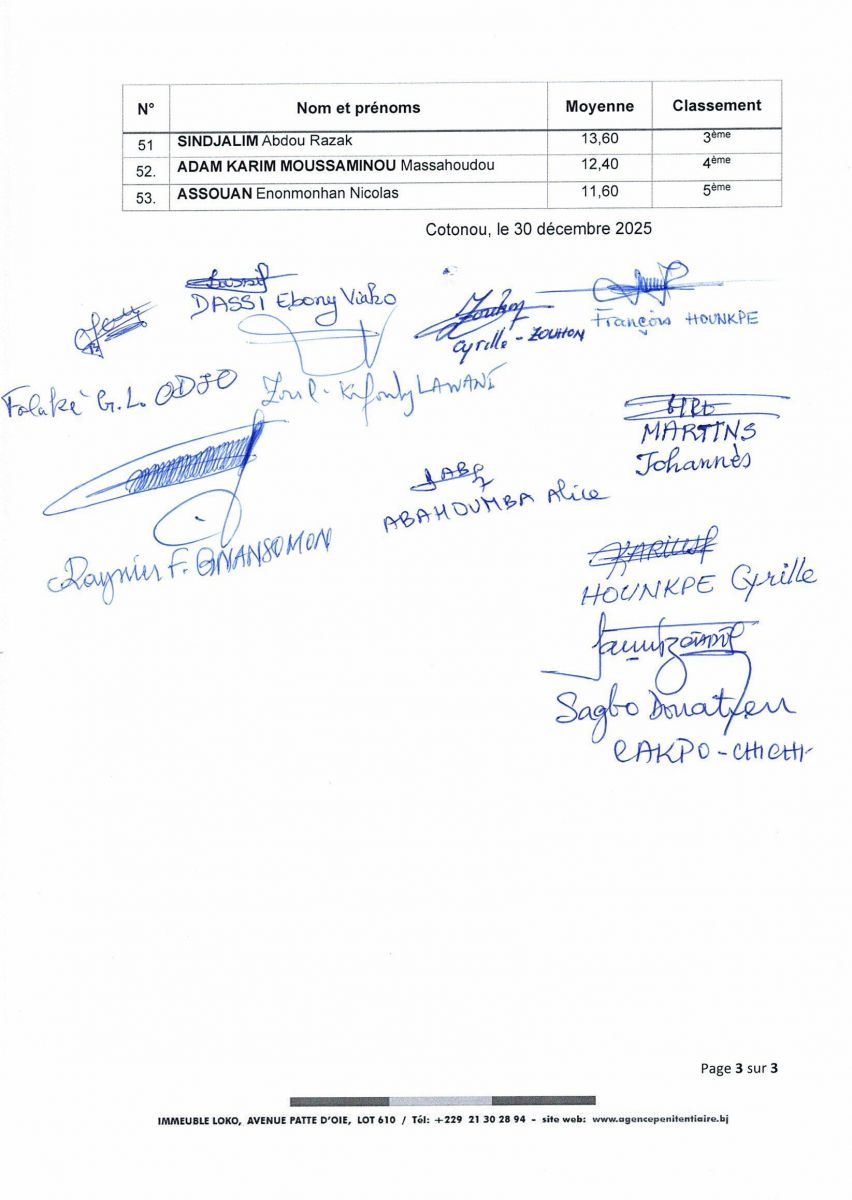 N° Nom et prénoms Moyenne Classement
51 SINDJALIM Abdou Razak 13,60 3ème
52. ADAM KARIM MOUSSAMINOU Massahoudou 12,40 4ème
53. ASSOUAN Enonmonhan Nicolas 11,60 5ème
Cotonou, le 30 décembre 2025
DASSI Ebony Viako
François HOUNKPE
Cyrille - ZOUHON
Folaké G.L. ODJO
LAWANI
MARTINS
Johannès
ABAHOUMBA Alice
Raynier F. GNANSOMON
HOUNKPE Cyrille
Sagbo Donatien
CAKPO-CHICHI
Page 3 sur 3
IMMEUBLE LOKO, AVENUE PATTE D'OIE, LOT 610 / Tél: +229 21 30 28 94 - site web: www.agencepenitentiaire.bj